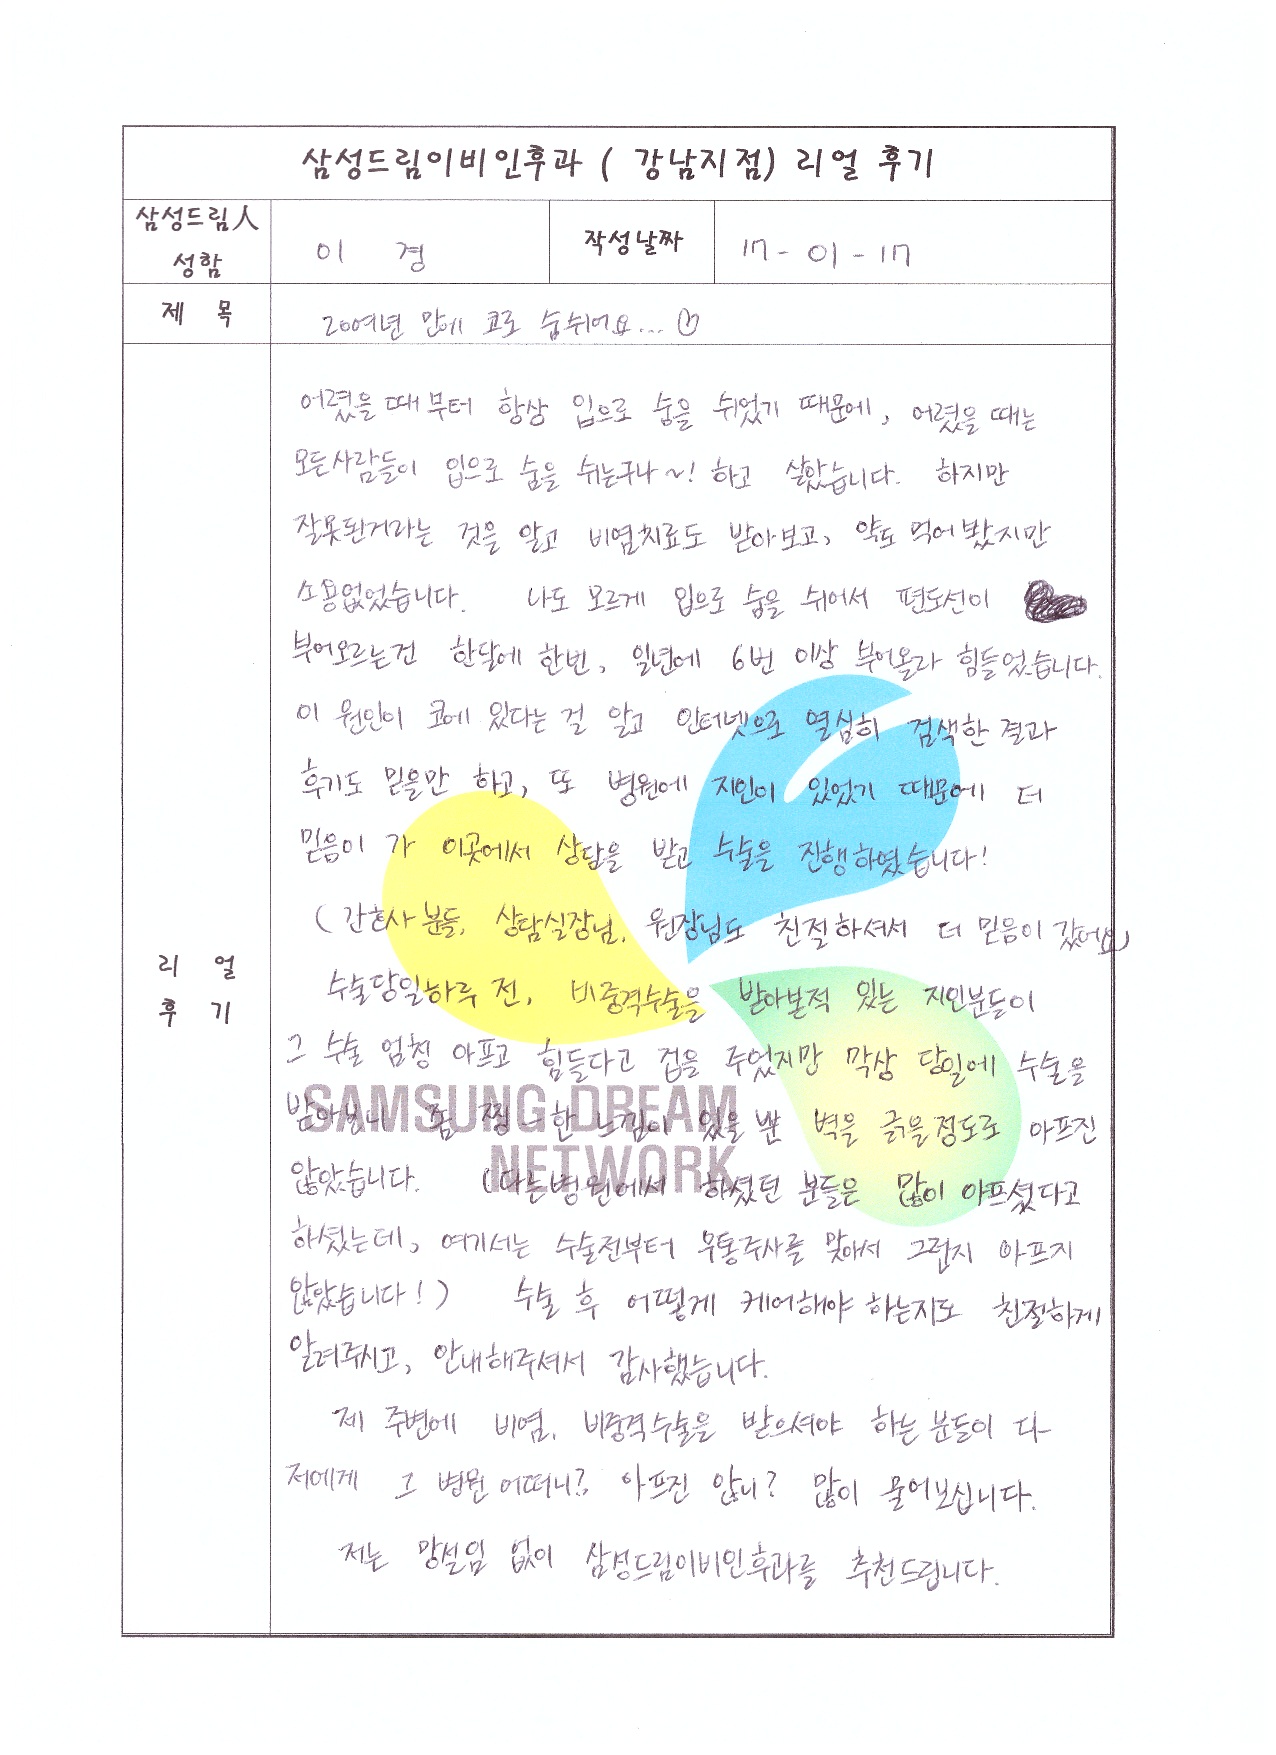 삼성드림이비인후과 ( 강남지점) 리얼 후기
삼성드림人
성함
이 경
작성날짜
17-01-17
제 목
20여년 만에 코로 숨쉬어요...♡
어렸을 때부터 항상 입으로 숨을 쉬었기 때문에, 어렸을 때는
모든사람들이 입으로 숨을 쉬는구나~! 하고 살았습니다. 하지만
잘못된거라는 것을 알고 비염치료도 받아보고, 약도 먹어봤지만
소용없었습니다. 나도 모르게 입으로 숨을 쉬어서 편도선이
부어오르는건 한달에 한번, 일년에 6번 이상 부어올라 힘들었습니다.
이 원인이 코에 있다는 걸 알고 인터넷으로 열심히 검색한 결과
후기도 믿을만 하고, 또 병원에 지인이 있었기 때문에 더
믿음이 가 이곳에서 상담을 받고 수술을 진행하였습니다!
(간호사 분들, 상담실장님, 원장님도 친절하셔서 더 믿음이 갔어요)
리 얼
후 기
수술당일하루 전, 비중격수술을 받아본적 있는 지인분들이
그 수술 엄청 아프고 힘들다고 겁을 주었지망 막상 당일에 수술을
받아보니 좀 찡-한 느낌이 있을 뿐 벽을 긁을정도로 아프진
SAMSUNG DREAM
NETWORK
않았습니다. (다른병원에서 하셨던 분들은 많이 아프셨다고
하셨는데, 여기서는 수술전부터 무통주사를 맞아서 그런지 아프지
않았습니다!) 수술 후 어떻게 케어해야 하는지도 친절하게
알려주시고, 안내해주셔서 감사했습니다.
제 주변에 비염, 비중격수술을 받으셔야 하는 분들이 다-
저에게 그 병원 어떠니? 아프진 않니? 많이 물어보십니다.
저는 망설임 없이 삼성드림이비인후과를 추천드립니다.